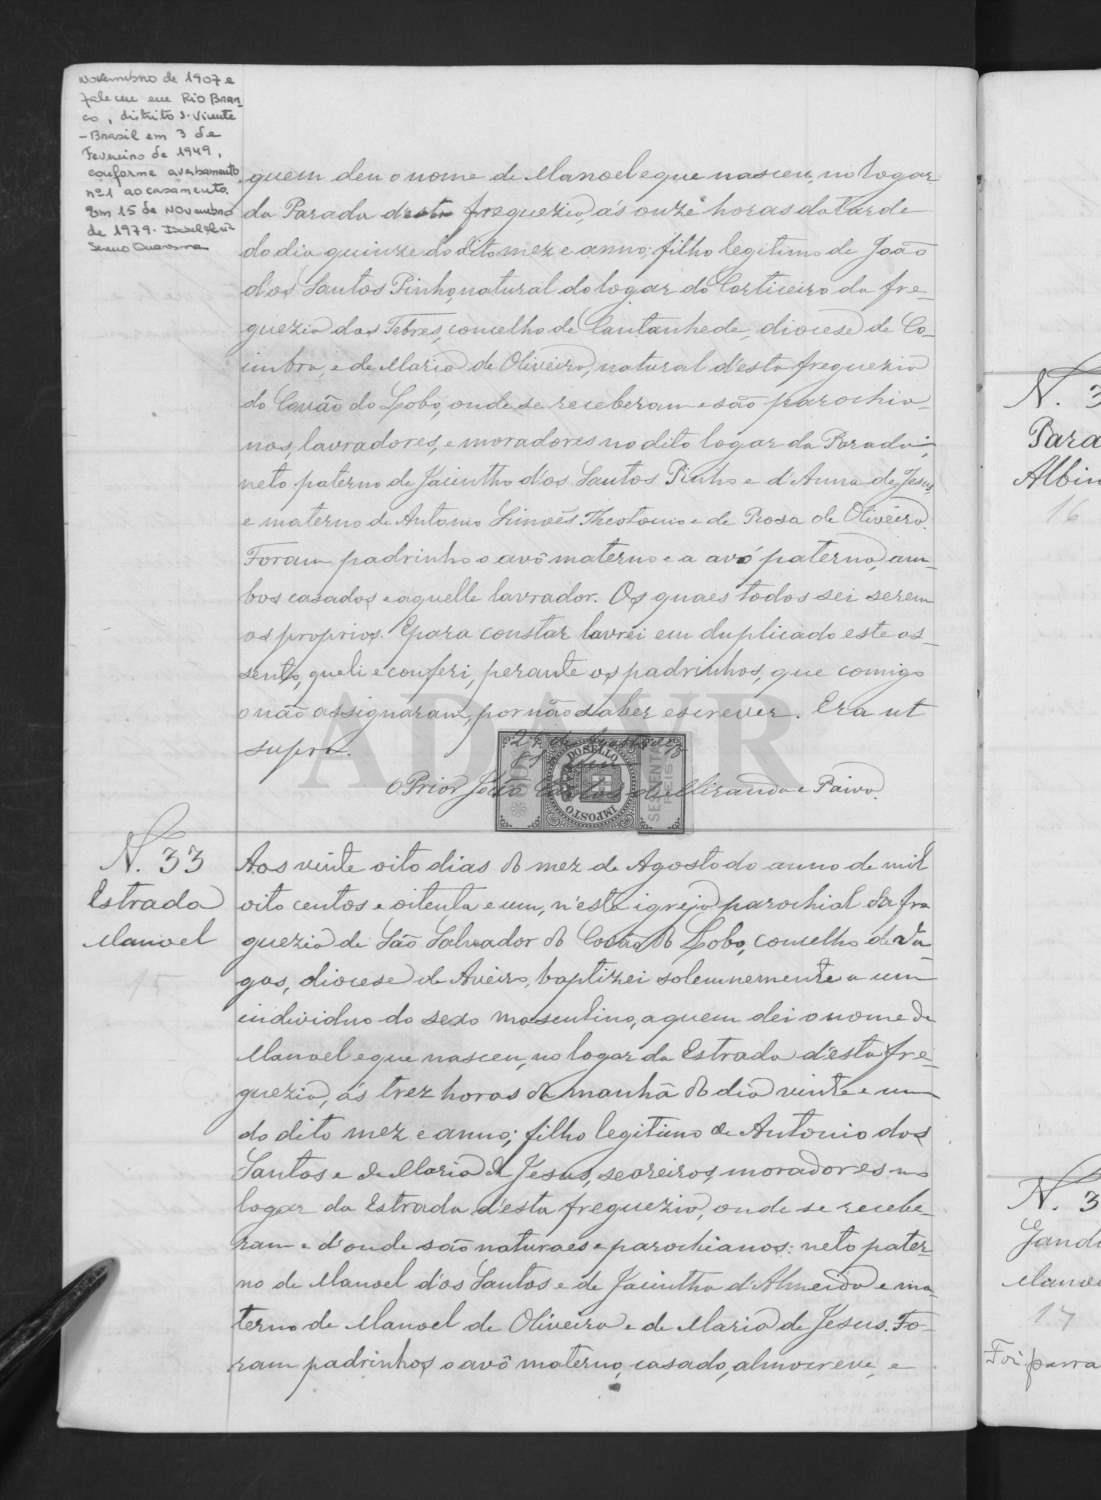 Novembro de 1907 e
faleceu em Rio Bran-
co, distrito S. Vicente
- Brasil em 3 de
Fevereiro de 1949,
conforme averbamento
nº 1 ao casamento.
Em 15 de Novembro
de 1979.
quem deu o nome de Manoel e que nasceu, no logar
da Parada desta freguezia, ás onze horas da tarde
do dia quinze do dito mez e anno; filho legitimo de João
dos Santos Pinho, natural do logar do Corticeiro da fre-
guezia das Febres, concelho de Cantanhede, diocese de Co-
imbra, e de Maria de Oliveira, natural d'esta freguezia
do Covão do Lobo, onde se receberam e são parochia-
nos, lavradores, e moradores no dito logar da Parada;
neto paterno de Jacintho d'os Santos Pinho e d'Anna de Jesus,
e materno de Antonio Simoẽs Theotonio e de Rosa de Oliveira.
Foram padrinho o avô materno e a avó paterna, am-
bos casados e aquelle lavrador. Os quaes todos sei serem
os proprios. E para constar lavrei em duplicado este as-
sento, que li e conferi, perante os padrinhos, que comigo
o não assignaram, por não saber escrever. Era ut
supra.
27 de Agosto de
O Prior João de Miranda e Paiva.
DO SELLO
IMPOSTO
SESSENTA
REIS
ADAVR
N. 33
Estrada
Manoel
15
Aos vinte oito dias do mez de Agosto do anno de mil
oito centos e oitenta e um, n'esta igreja parochial da fre
guezia de São Salvador do Covão do Lobo, concelho de Va-
gos, diocese de Aveiro, baptizei solemnemente a um
individuo do sexo masculino, a quem dei o nome de
Manoel e que nasceu, no logar da Estrada d'esta fre-
guezia, ás trez horas da manhã do dia vinte e um
do dito mez e anno; filho legitimo de Antonio dos
Santos e de Maria de Jesus, seareiros, moradores no
logar da Estrada d'esta freguezia, onde se recebe-
ram e d'onde são naturaes e parochianos: neto pater-
no de Manoel d'os Santos e de Jacintha d'Almeida e ma-
terno de Manoel de Oliveira e de Maria de Jesus. Fo-
ram padrinhos o avô materno, casado, almocreve, e
N. 3
Para
Albin
16
N. 3
Gand
Mano
17
Foi para